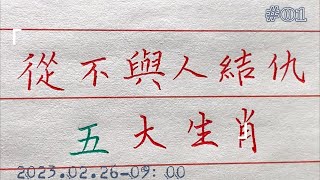 #01
從不與人結仇
五大生肖
2023.02.26-09:00